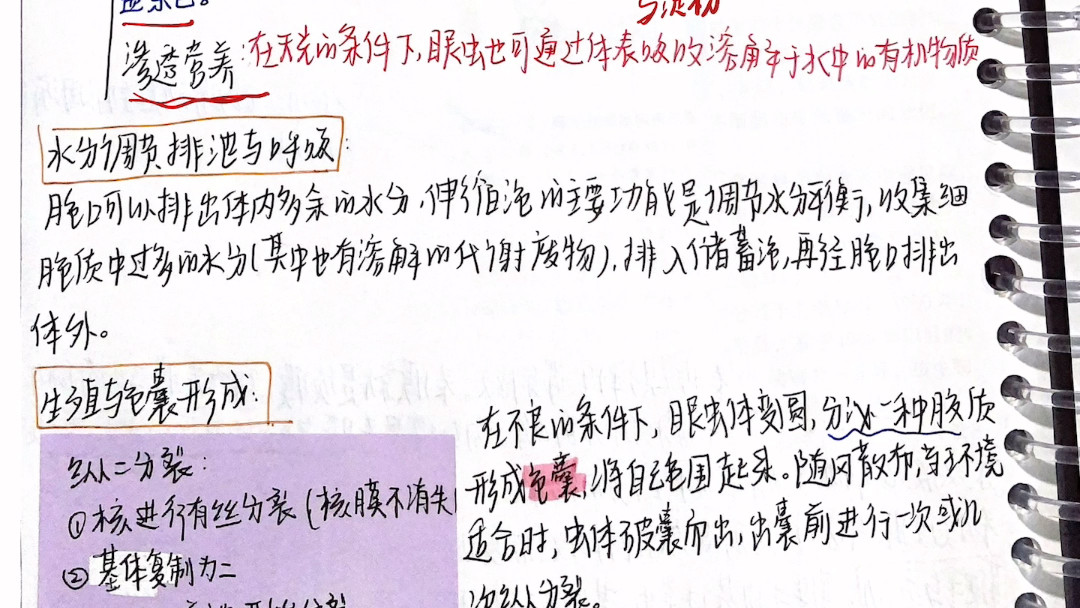 显示自。
与淀粉
渗透营养:在无光的条件下,眼虫也可通过体表吸收溶解于水中的有机物质
水分调节排泄与呼吸:
胞口可以排出体内多余的水分,伸缩泡的主要功能是调节水分平衡,收集细
胞质中过多的水分(其中也有溶解的代谢废物),排入储蓄泡,再经胞口排出
体外。
生殖与包囊形成:
纵二分裂:
①核进行有丝分裂(核膜不消失)
②基体复制为二
在不良的条件下,眼虫体变圆,分泌一种胶质
形成包囊,将自己包围起来。随风散布,当环境
适合时,虫体破囊而出,出囊前进行一次或几
次纵分裂。